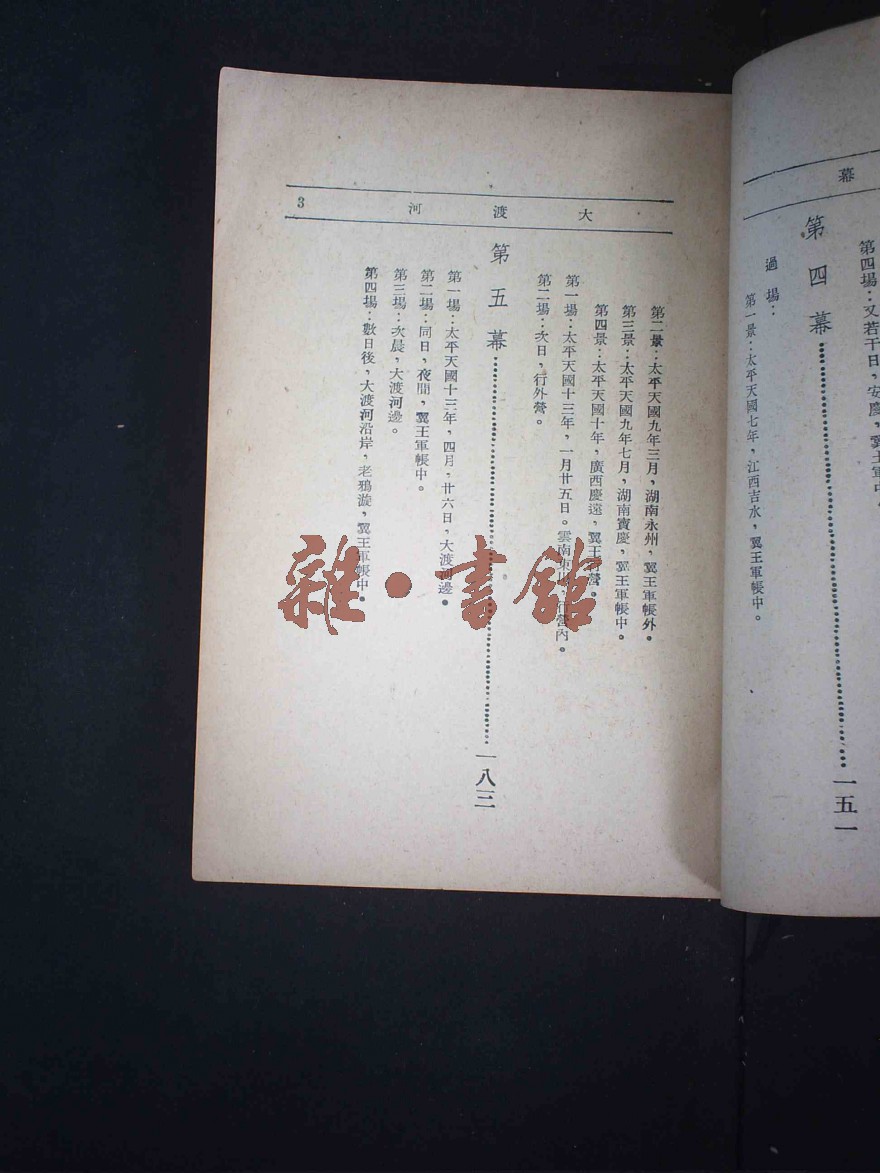 幕
第四場：又若干日，安慶，翼王軍中。
第四幕……一五一
過場：
第一景：太平天國七年，江西吉水，翼王軍帳中。
大渡河 3
第二景：太平天國九年三月，湖南永州，翼王軍帳外。
第三景：太平天國九年七月，湖南寶慶，翼王軍帳中。
第四景：太平天國十年，廣西慶遠，翼王行營。
第一場：太平天國十三年，一月廿五日。雲南東 營內。
第二場：次日，行外營。
第五幕……一八三
第一場：太平天國十三年，四月，廿六日，大渡河邊。
第二場：同日，夜間，翼王軍帳中。
第三場：次晨，大渡河邊。
第四場：數日後，大渡河沿岸，老鴉漩，翼王軍帳中。
雜·書館